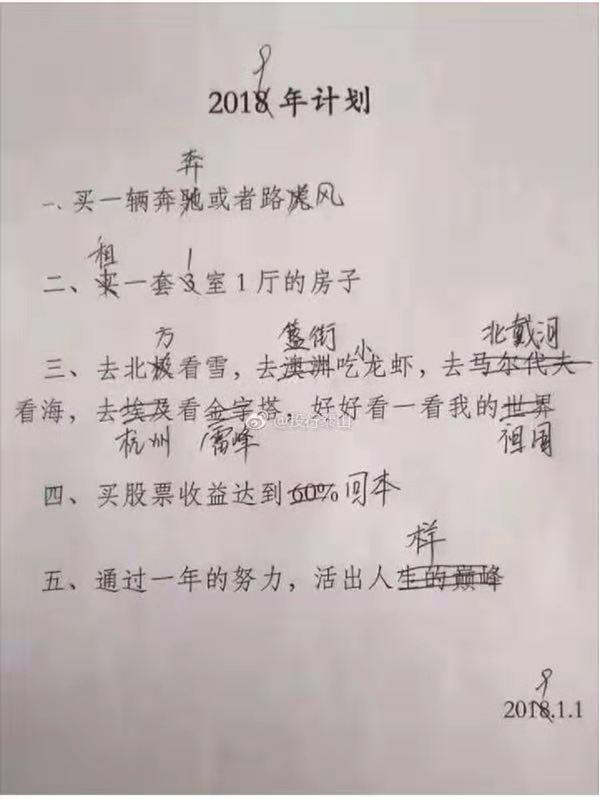 9
2018年计划
奔
一、买一辆奔驰或者路虎风
租 1
二、买一套3室1厅的房子
方 簋街 小 北戴河
三、去北极看雪，去澳洲吃龙虾，去马尔代夫
看海，去埃及看金字塔，好好看一看我的世界
@投行泰山
杭州 雷峰 祖国
四、买股票收益达到60%回本
样
五、通过一年的努力，活出人生的巅峰
9
2018.1.1